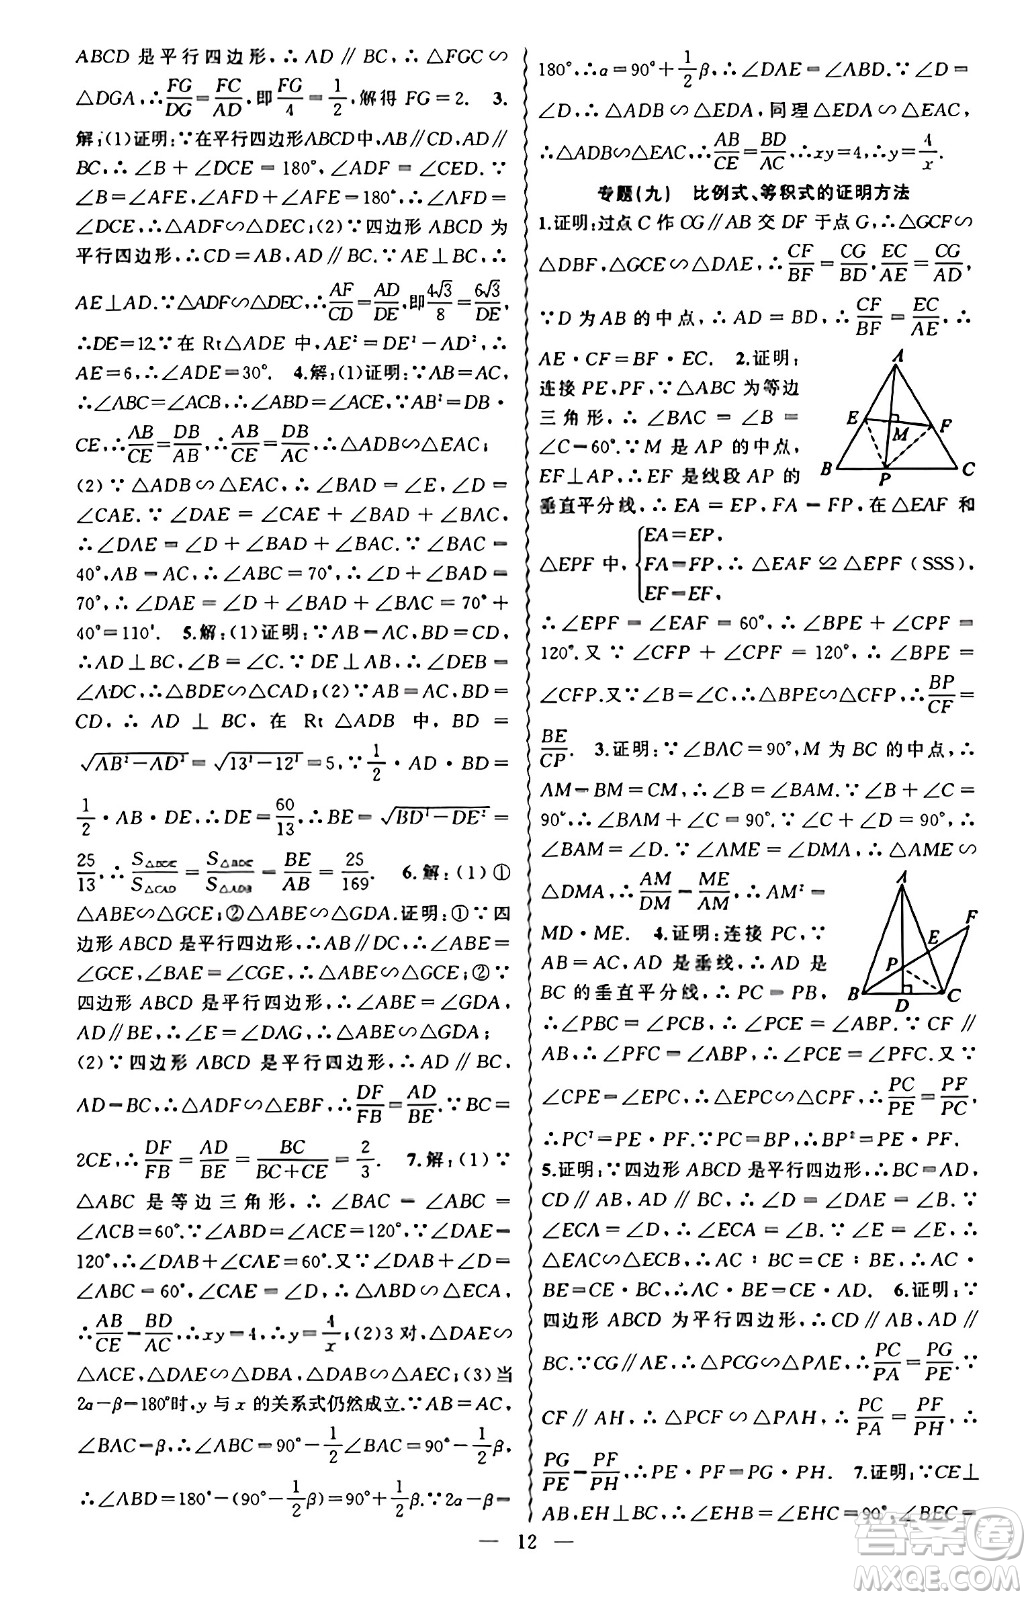 ABCD 是平行四边形,∴AD∥BC,∴△FGC∽
△DGA,∴FG/DG=FC/AD,即FG/4=1/2,解得 FG=2. 3.
解:(1)证明:∵在平行四边形ABCD中,AB∥CD,AD∥
BC,∴∠B+∠DCE=180°,∠ADF=∠CED.∵
∠B=∠AFE,∠AFD+∠AFE=180°,∴∠AFD=
∠DCE,∴△ADF∽△DEC;(2)∵四边形 ABCD 为
平行四边形,∴CD=AB,AD∥BC.∵AE⊥BC,∴
AE⊥AD.∵△ADF∽△DEC,∴AF/CD=AD/DE,即4√3/8=6√3/DE,
∴DE=12.∵在 Rt△ADE 中,AE²=DE²-AD²,∴
AE=6,∴∠ADE=30°. 4.解:(1)证明:∵AB=AC,
∴∠ABC=∠ACB,∴∠ABD=∠ACE.∵AB²=DB·
CE,∴AB/CE=DB/AB,∴AB/CE=DB/AC,∴△ADB∽△EAC;
(2)∵△ADB∽△EAC,∴∠BAD=∠E,∠D=
∠CAE.∵∠DAE=∠CAE+∠BAD+∠BAC,
∴∠DAE=∠D+∠BAD+∠BAC.∵∠BAC=
40°,AB=AC,∴∠ABC=70°,∴∠D+∠BAD=
70°,∴∠DAE=∠D+∠BAD+∠BAC=70°+
40°=110°. 5.解:(1)证明:∵AB=AC,BD=CD,
∴AD⊥BC,∠B=∠C.∵DE⊥AB,∴∠DEB=
∠ADC,∴△BDE∽△CAD;(2)∵AB=AC,BD=
CD,∴AD⊥BC,在 Rt△ADB 中,BD=
√AB²-AD²=√13²-12²=5,∵1/2·AD·BD=
1/2·AB·DE,∴DE=60/13,∴BE=√BD²-DE²=
25/13,∴S△BDE/S△CAD=S△BDE/S△ADB=BE/AB=25/169. 6.解:(1)①
△ABE∽△GCE;②△ABE∽△GDA.证明:①∵四
边形 ABCD 是平行四边形,∴AB∥DC,∴∠ABE=
∠GCE,∠BAE=∠CGE,∴△ABE∽△GCE;②∵
四边形 ABCD 是平行四边形,∴∠ABE=∠GDA,
AD∥BE,∴∠E=∠DAG,∴△ABE∽△GDA;
(2)∵四边形 ABCD 是平行四边形,∴AD∥BC,
AD=BC,∴△ADF∽△EBF,∴DF/FB=AD/BE.∵BC=
2CE,∴DF/FB=AD/BE=BC/BC+CE=2/3. 7.解:(1)∵
△ABC 是等边三角形,∴∠BAC=∠ABC=
∠ACB=60°.∵∠ABD=∠ACE=120°,∠DAE=
120°,∴∠DAB+∠CAE=60°.又∵∠DAB+∠D=
∠ABC=60°,∴∠CAE=∠D,∴△ABD∽△ECA,
∴AB/CE=BD/AC,∴xy=4,∴y=4/x;(2)3对,△DAE∽
△ACE,△DAE∽△DBA,△DAB∽△AEC;(3)当
2α-β=180°时,y 与 x 的关系式仍然成立.∵AB=AC,
∠BAC=β,∴∠ABC=90°-1/2∠BAC=90°-1/2β,
∴∠ABD=180°-(90°-1/2β)=90°+1/2β.∵2α-β=
180°,∴α=90°+1/2β,∴∠DAE=∠ABD.∵∠D=
∠D,∴△ADB∽△EDA,同理△EDA∽△EAC,
∴△ADB∽△EAC,∴AB/CE=BD/AC,∴xy=4,∴y=4/x.
专题(九) 比例式、等积式的证明方法
1.证明:过点 C 作 CG∥AB 交 DF 于点 G,∴△GCF∽
△DBF,△GCE∽△DAE,∴CF/BF=CG/BD,EC/AE=CG/AD,
∵D 为 AB 的中点,∴AD=BD,∴CF/BF=EC/AE,∴
AE·CF=BF·EC. 2.证明:
连接 PE,PF,∵△ABC 为等边
三角形,∴∠BAC=∠B=
∠C=60°.∵M 是 AP 的中点,
EF⊥AP,∴EF 是线段 AP 的
垂直平分线,∴EA=EP,FA=FP,在△EAF 和
△EPF 中,{EA=EP,
FA=FP,
EF=EF,
∴△EAF≌△EPF(SSS),
∴∠EPF=∠EAF=60°,∴∠BPE+∠CPF=
120°.又∵∠CFP+∠CPF=120°,∴∠BPE=
∠CFP.又∵∠B=∠C,∴△BPE∽△CFP,∴BP/CF=
BE/CP. 3.证明:∵∠BAC=90°,M 为 BC 的中点,∴
AM=BM=CM,∴∠B=∠BAM.∵∠B+∠C=
90°,∠DMC=90°,∴∠BDM+∠C=90°,∴
∠BAM=∠D.∵∠AME=∠DMA,∴△AME∽
△DMA,∴AM/DM=ME/AM,∴AM²=
MD·ME. 4.证明:连接 PC,∵
AB=AC,AD是垂线,∴AD 是
BC 的垂直平分线,∴PC=PB,
∴∠PBC=∠PCB,∴∠PCE=∠ABP.∵CF∥
AB,∴∠PFC=∠ABP,∴∠PCE=∠PFC.又∵
∠CPE=∠CPF,∴△PCE∽△CPF,∴PC/PE=PF/PC,
∴PC²=PF·PE.∵PC=BP,∴BP²=PE·PF.
5.证明:∵四边形 ABCD 是平行四边形,∴BC=AD,
CD∥AB,AD∥BC,∴∠D=∠EAF=∠B.∵
∠ECA=∠D,∴∠ECA=∠B.∵∠E=∠E,∴
△EAC∽△ECB,∴AC:BC=CE:BE,∴AC·
BE=CE·BC,∴AC·BE=CE·AD. 6.证明:∵
四边形 ABCD 为平行四边形,∴AB∥CD,AD∥
BC.∵CG∥AE,∴△PCG∽△PAE,∴PC/PA=PG/PE.∵
CF∥AH,∴△PCF∽△PAH,∴PC/PA=PF/PH,∴
PG/PE=PF/PH,∴PE·PF=PG·PH. 7.证明:∵CE⊥
AB,EH⊥BC,∴∠EHB=∠EHC=90°,∠BEC=
A
E
M
F
B
P
C
A
F
E
P
B
D
C
— 12 —
答案圈
MXQE.COM